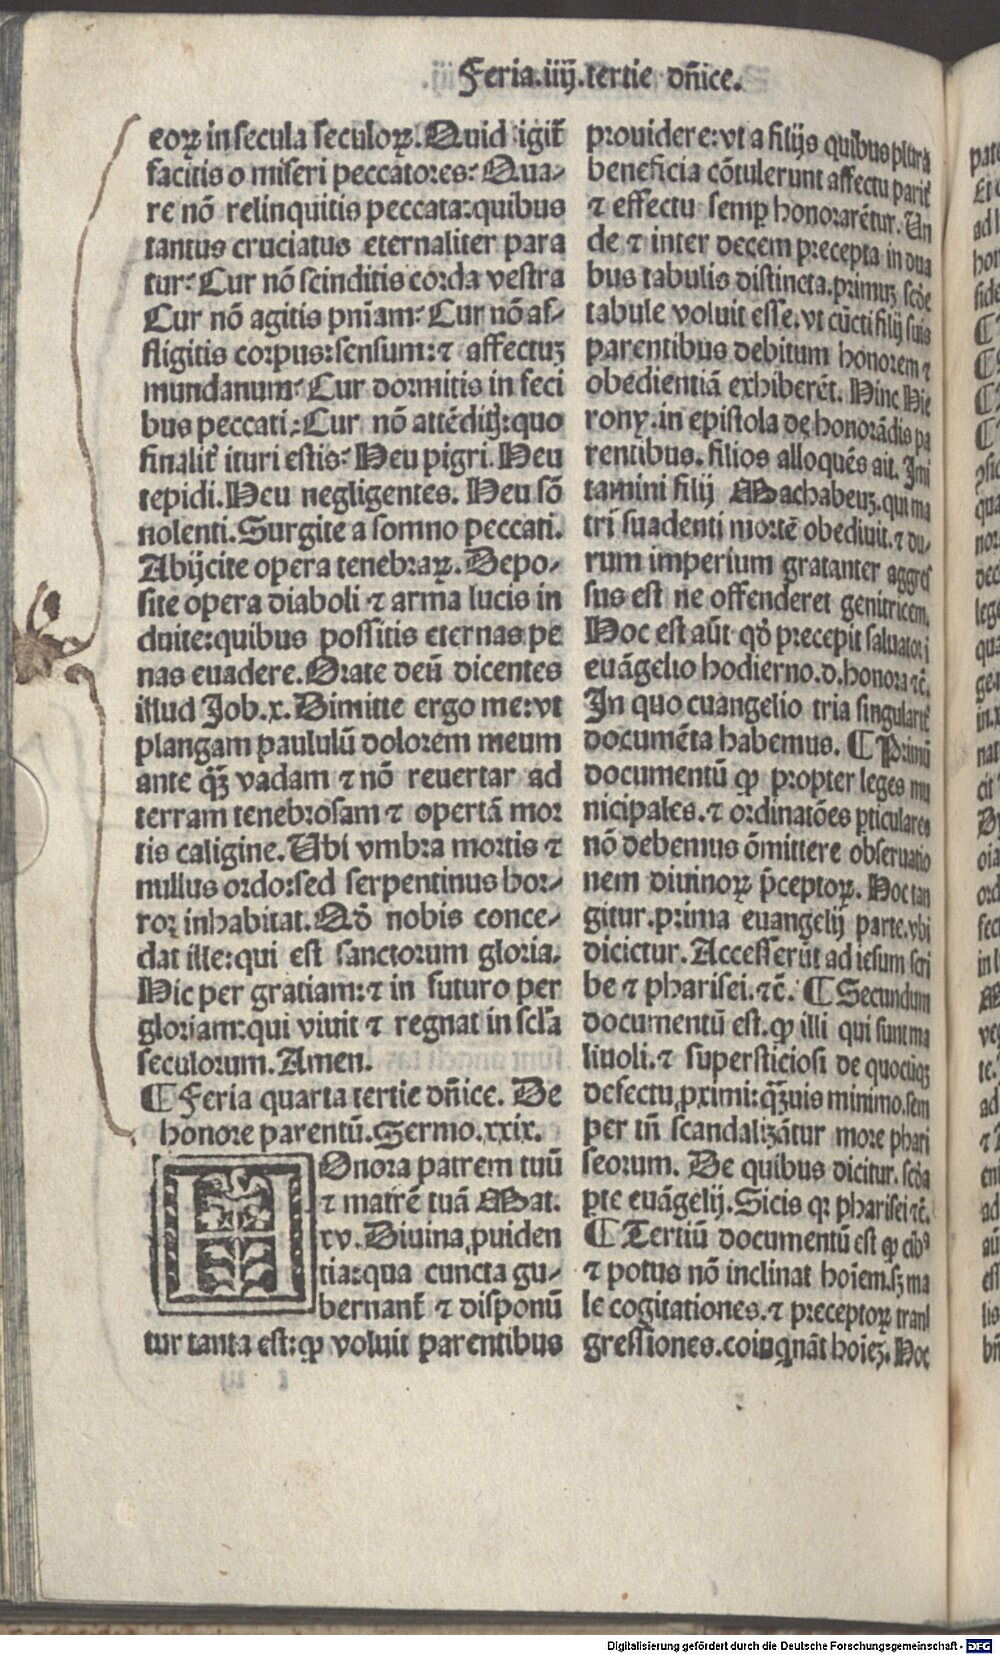 Feria.iiij.tertie dn̄ice.
eoꝝ in secula seculoꝝ. Quid igit̄
facitis o miseri peccatores? Qua⸗
re nō relinquitis peccata: quibus
tantus cruciatus eternaliter para
tur? Cur nō scinditis corda vestra
Cur nō agitis pn̄iam? Cur nō af⸗
fligitis corpus: sensum: ⁊ affectuꝫ
mundanum? Cur dormitis in feci
bus peccati? Cur nō attēdit: quo
finalit̄ ituri estis? Heu pigri. Heu
tepidi. Heu negligentes. Heu sō
nolenti. Surgite a somno peccati.
Abijcite opera tenebraꝝ. Depo⸗
site opera diaboli ⁊ arma lucis in
duite: quibus possitis eternas pe
nas euadere. Orate deū dicentes
illud Job.x. Dimitte ergo me: vt
plangam paululū dolorem meum
ante qꝫ̄ vadam ⁊ nō reuertar ad
terram tenebrosam ⁊ opertā mor
tis caligine. Ubi vmbra mortis ⁊
nullus ordo: sed serpentinus hor⸗
ror inhabitat. Qd̄ nobis conce⸗
dat ille: qui est sanctorum gloria.
Hic per gratiam: ⁊ in futuro per
gloriam: qui viuit ⁊ regnat in scl̄a
seculorum. Amen.
¶ Feria quarta tertie dn̄ice. De
honore parentū. Sermo.xxix.
HOnora patrem tuū
⁊ matrē tuā Mat.
xv. Diuina ꝓuiden
tia: qua cuncta gu⸗
bernant̄ ⁊ disponū
tur tanta est: ꝙ voluit parentibus
prouidere: vt a filijs quibus plura
beneficia cōtulerunt affectu parit̄
⁊ effectu semꝑ honorarētur. Un
de ⁊ inter decem precepta in dua
bus tabulis distincta. primuꝫ scd̄e
tabule voluit esse. vt cūcti filij suis
parentibus debitum honorem ⁊
obedientiā exhiberēt. Hinc Hie
rony. in epistola de honorādis pa
rentibus. filios alloquēs ait. Imi
tamini filij Machabeuꝫ. qui ma
tri suadenti mortē obediuit. ⁊ du⸗
rum imperium gratanter aggres
sus est ne offenderet genitricem.
Hoc est aūt qd̄ precepit saluator i
euāgelio hodierno. d. honora ⁊c̄.
In quo euangelio tria singularit̄
documēta habemus. ¶ Primū
documentū ꝙ propter leges mu
nicipales. ⁊ ordinatōes ꝑticulares
nō debemus ōmittere obseruatio
nem diuinoꝝ p̄ceptoꝝ. Hoc tan
gitur. prima euangelij parte. vbi
dicictur. Accesserūt ad iesum scri
be ⁊ pharisei. ⁊c̄. ¶ Secundum
documentū est. ꝙ illi qui sunt ma
liuoli. ⁊ supersticiosi de quocūqꝫ
defectu ꝓximi: qꝫ̄uis minimo. sem
per tn̄ scandalizātur more phari
seorum. De quibus dicitur. scd̄a
ꝑte euāgelij. Sicis qꝛ pharisei ⁊c̄.
¶ Tertiū documentū est ꝙ cibꝰ
⁊ potus nō inclinat hoīem. sꝫ ma
le cogitationes. ⁊ preceptoꝝ tranſ
gressiones. coinqnāt hoīeꝫ. Hoc
Digitalisierung gefördert durch die Deutsche Forschungsgemeinschaft - DFG